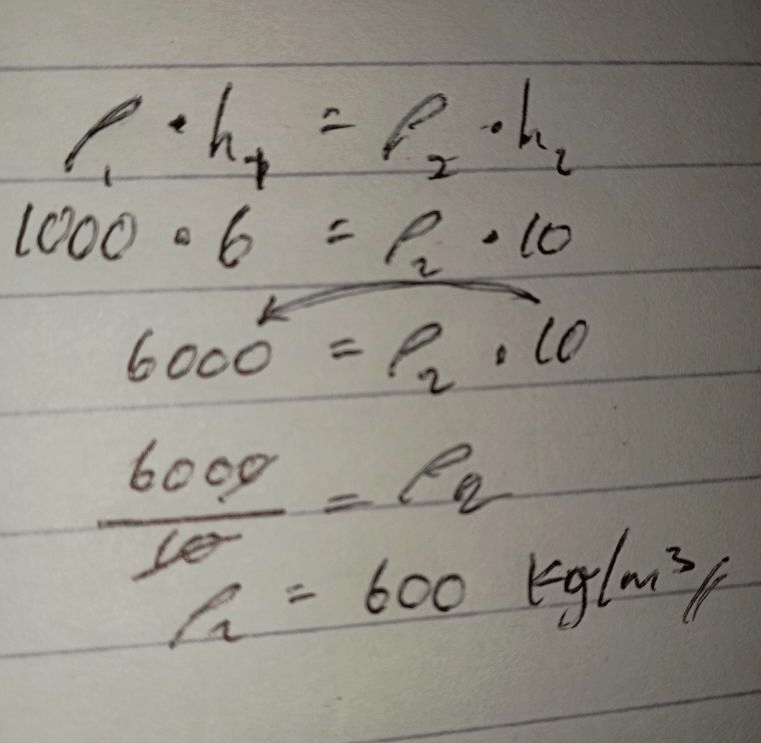 ρ₁ · h₁ = ρ₂ · h₂
1000 · 6 = ρ₂ · 10
6000 = ρ₂ · 10
6000/10 = ρ₂
ρ₂ = 600 kg/m³//